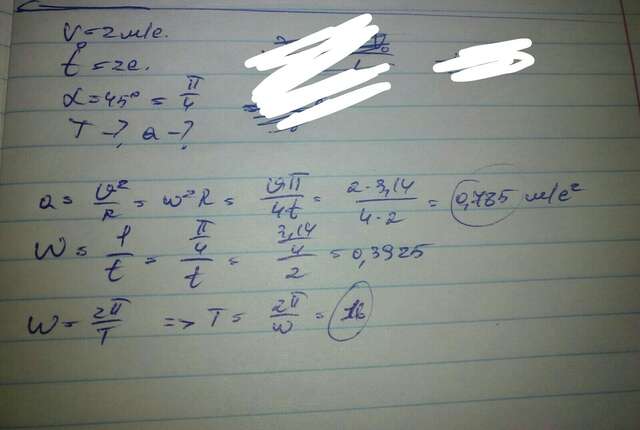 v = 2 м/с.
t = 2с.
α = 45° = π/4
T - ? a - ?
a = v²/R = ω²R = vπ/4t = 2·3,14/4·2 = 0,785 м/с²
ω = φ/t = π/4/t = 3,14/4/2 = 0,3925
ω = 2π/T => T = 2π/ω = 16